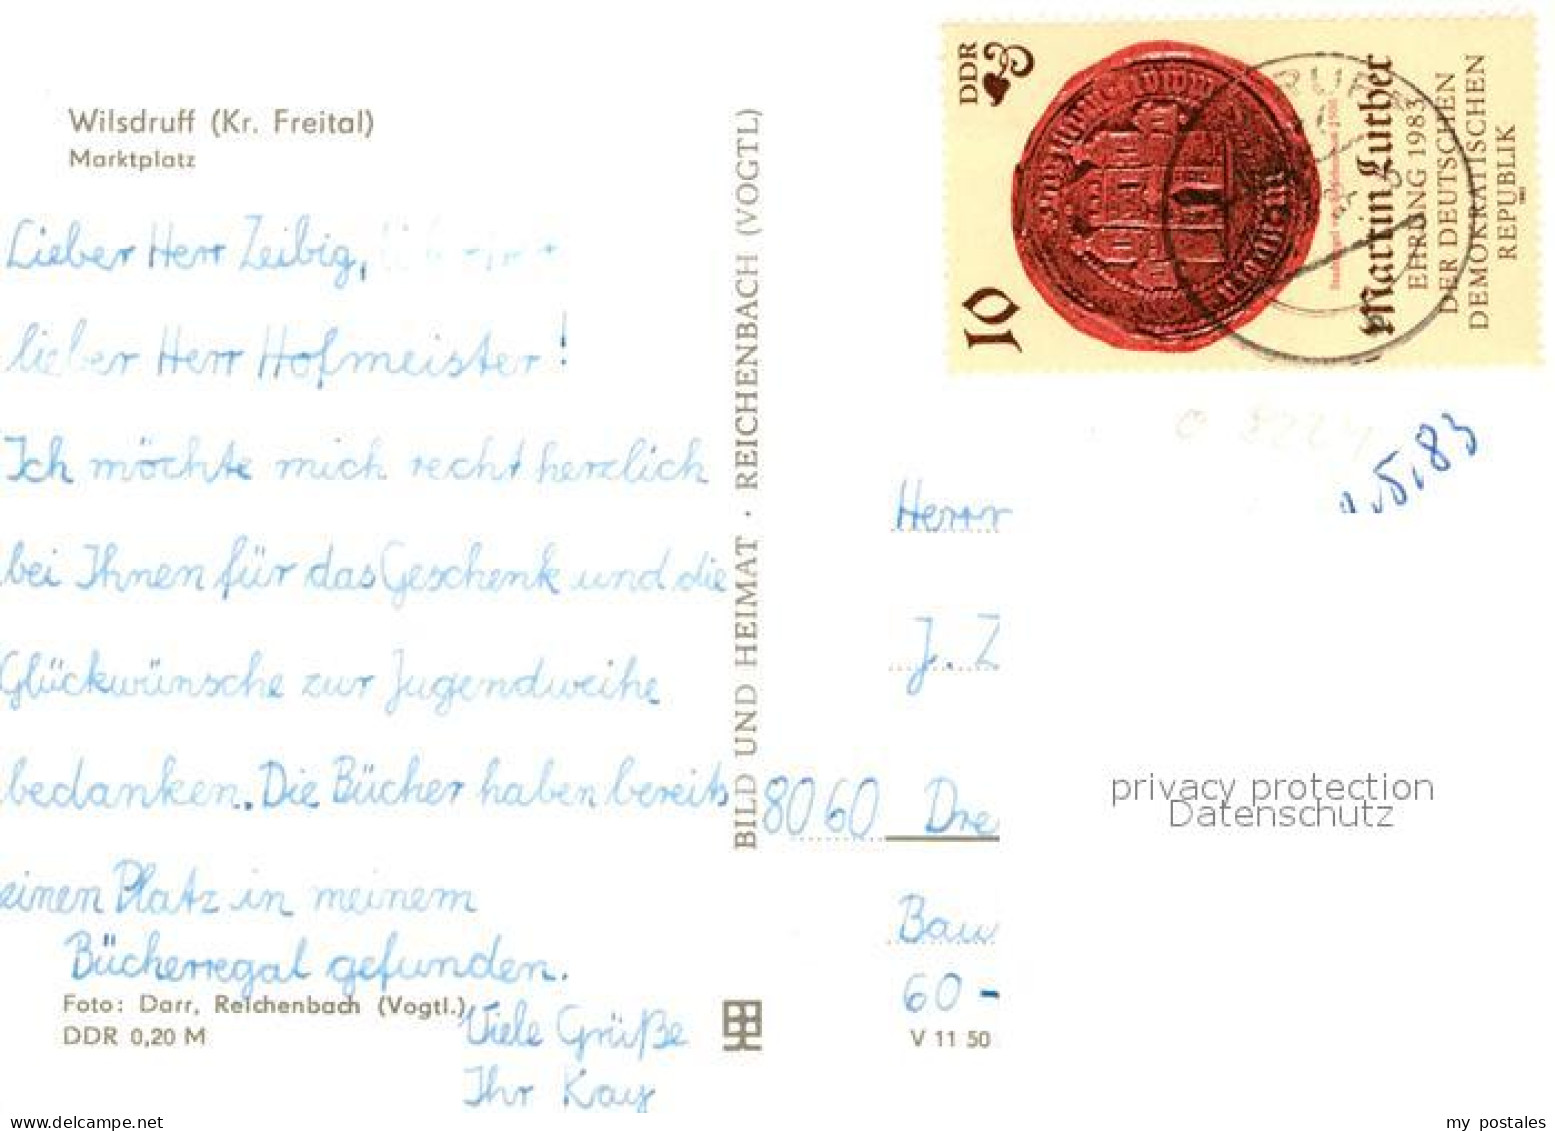 Wilsdruff (Kr. Freital)
Marktplatz
Lieber Herr Zeibig,
lieber Herr Hofmeister!
Ich möchte mich recht herzlich
bei Ihnen für das Geschenk und die
Glückwünsche zur Jugendweihe
bedanken. Die Bücher haben bereits
einen Platz in meinem
Bücherregal gefunden.
Viele Grüße
Ihr Kay
Foto: Darr, Reichenbach (Vogtl.)
DDR 0,20 M
BILD UND HEIMAT · REICHENBACH (VOGTL)
DDR
10
Martin Luther
EHRUNG 1983
DER DEUTSCHEN
DEMOKRATISCHEN
REPUBLIK
.5.83
Herrn
J. Z
8060 Dre
Bau
60 -
V 11 50
privacy protection
Datenschutz
www.delcampe.net
my postales